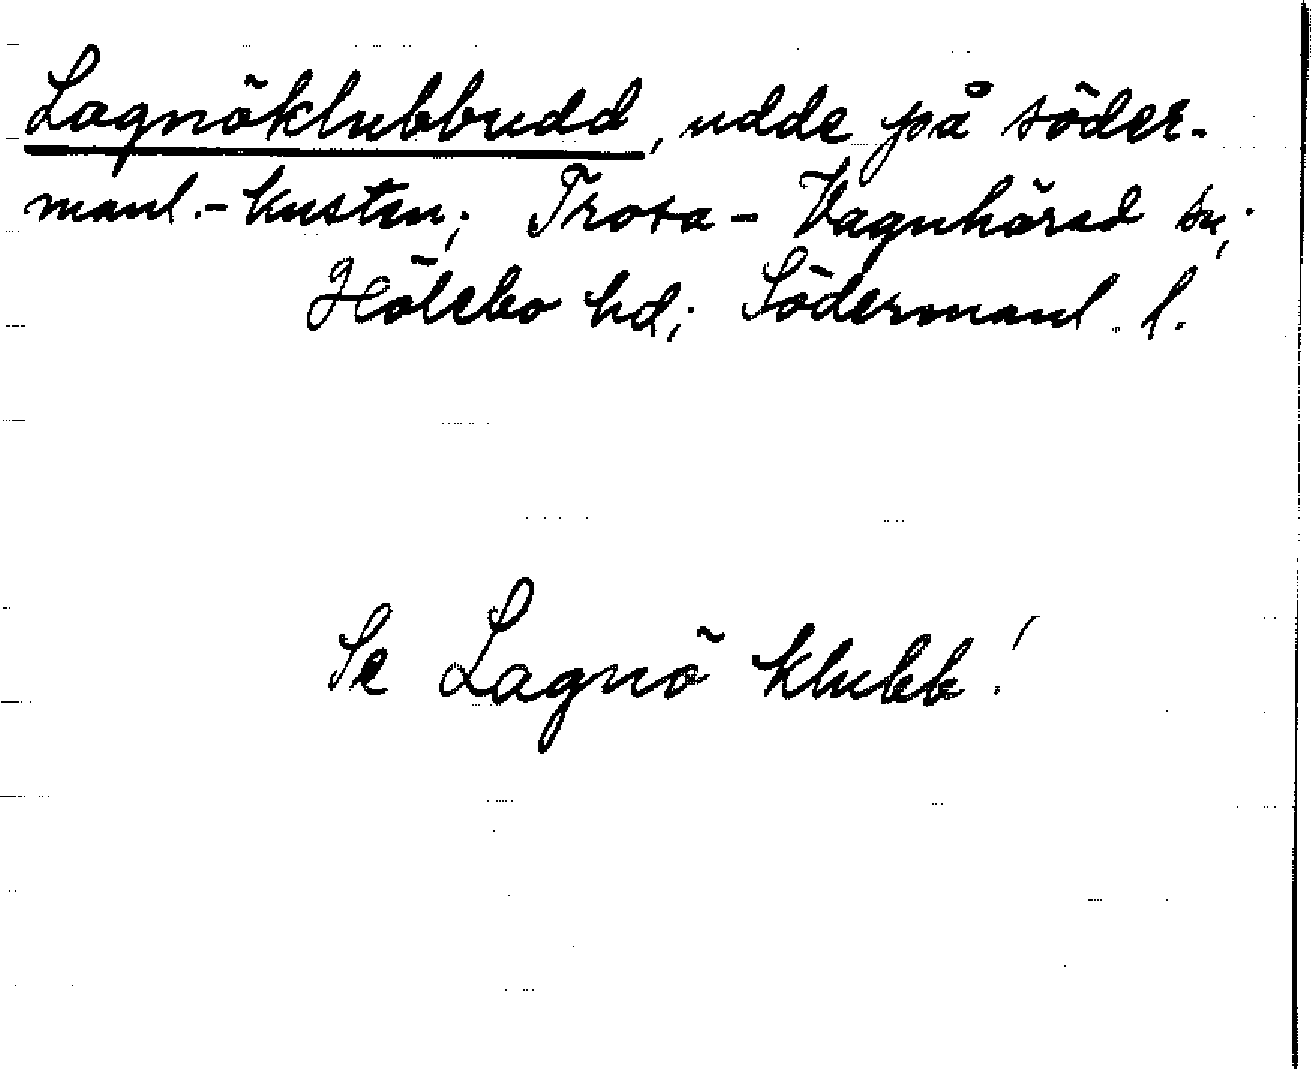 Lagnöklubbudd, udde på söder-
manl.-kusten; Trosa-Vagnhärad sn;
Hölebo hd; Södermanl. l.
Se Lagnö klubb!